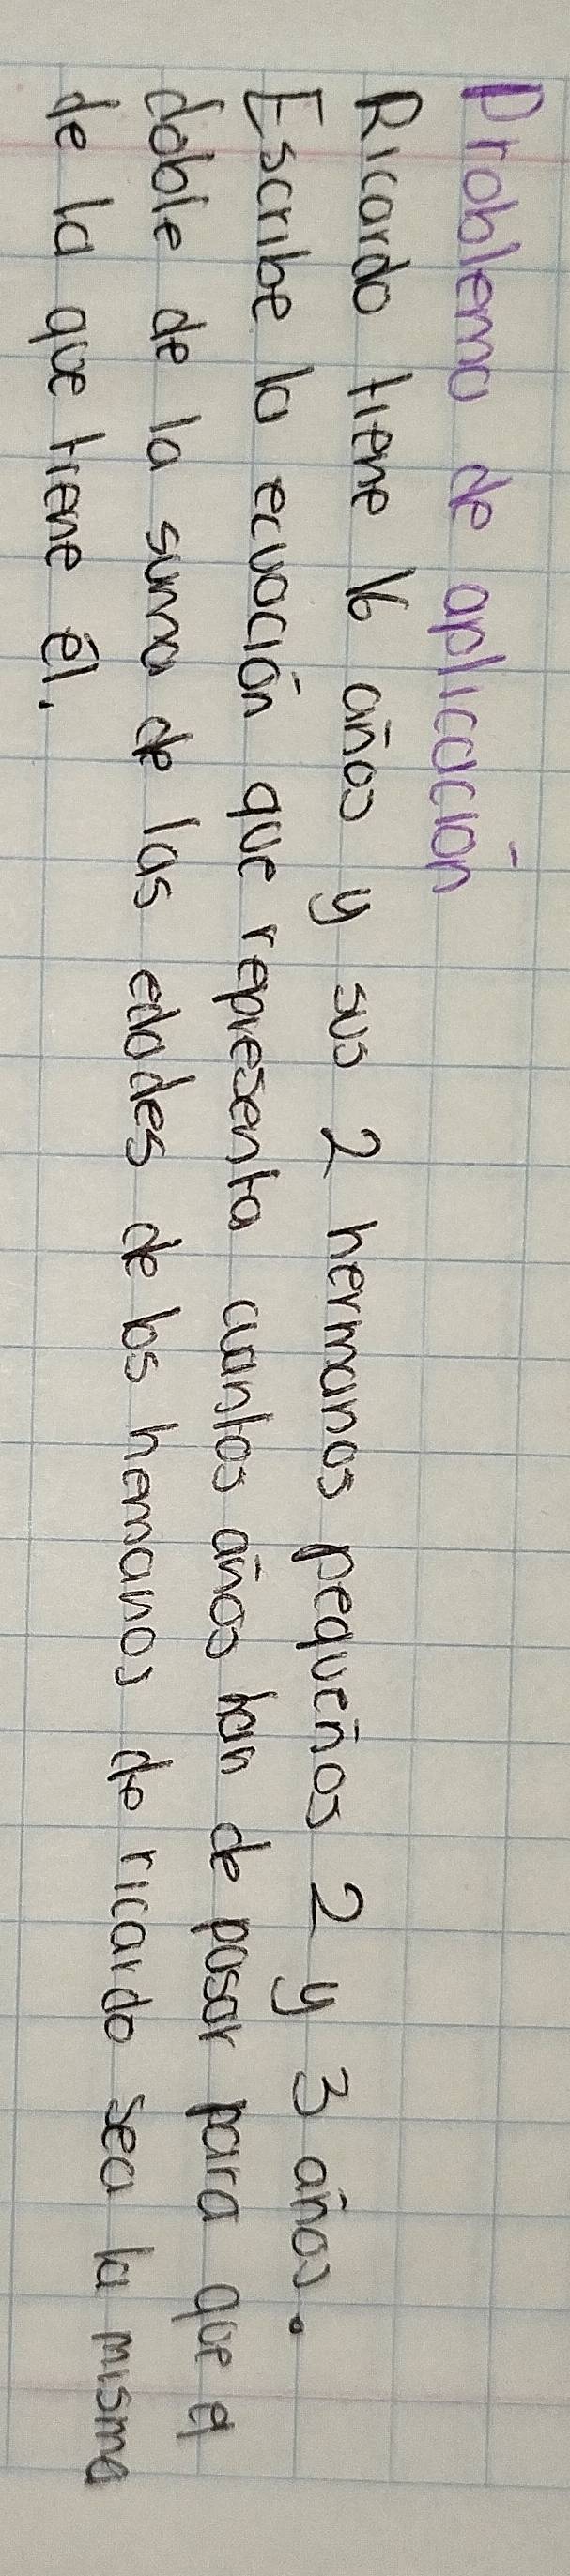 Problema de aplicación
Ricardo tiene 16 años y sus 2 hermanos pequeños 2 y 3 años.
Escribe la ecuación que representa cuantos años han de pasar para que el
doble de la suma de las edades de los hemanos de ricardo sea la misma
de la que tiene él.